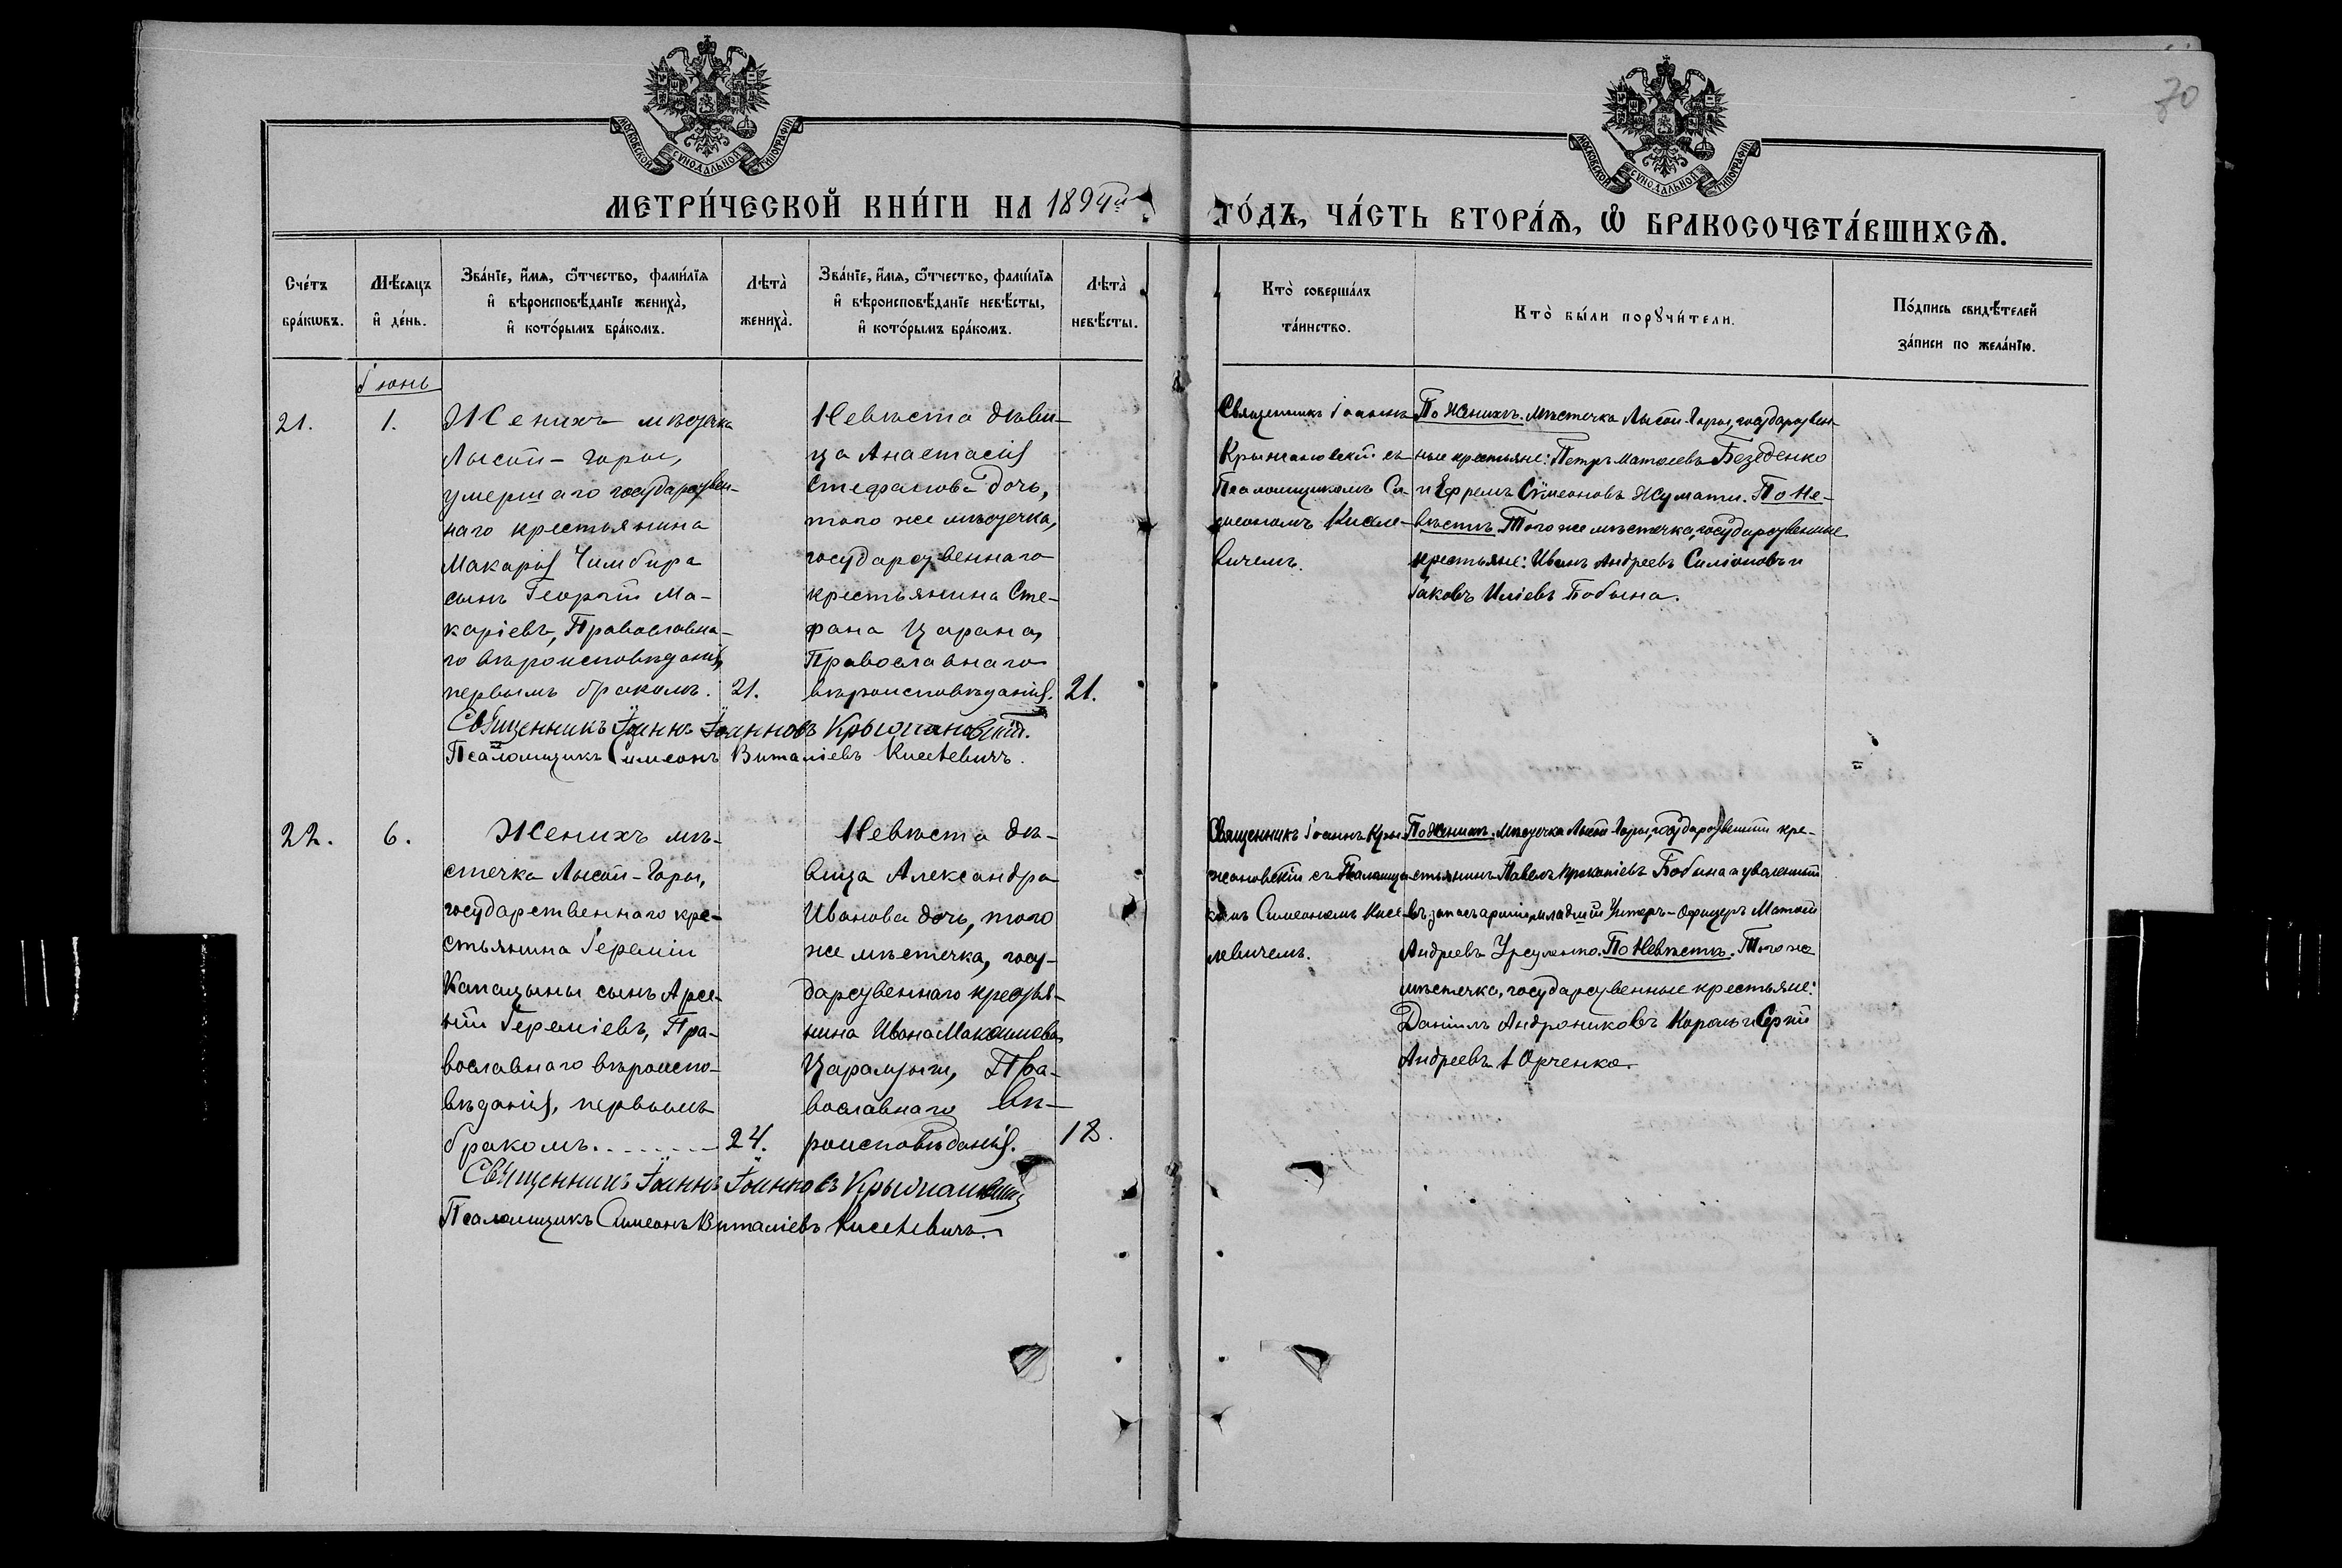 70
МОСКОВСКОЙ СУНОДАЛЬНОЙ ТИПОГРАФІИ
МОСКОВСКОЙ СУНОДАЛЬНОЙ ТИПОГРАФІИ
МЕТРИ́ЧЕСКОЙ КНИ́ГИ НА 1894й
ГО́ДЪ, ЧА́СТЬ ВТОРА́Ѧ, Ѡ҆ БРАКОСОЧЕТА́ВШИХСѦ.
Сче́тъ
бра́кѡвъ.
Мѣ́сяцъ
и҆ де́нь.
Зва́нїе, и҆́мя, ѻ҆́тчество, фами́лїя
и҆ вѣроисповѣ́данїе жениха̀,
и҆ кото́рымъ бра́комъ.
Лѣта̀
жениха̀.
Зва́нїе, и҆́мя, ѻ҆́тчество, фами́лїя
и҆ вѣроисповѣ́данїе невѣ́сты,
и҆ кото́рымъ бра́комъ.
Лѣта̀
невѣ́сты.
Кто̀ соверша́лъ
та́инство.
Кто̀ бы́ли порꙋчи́тели.
По́дпись свидѣ́телей
за́писи по жела́нїю.
Іюнь
21.
1.
Женихъ мѣстечка
Лысой-Горы,
умершаго государствен-
наго крестьянина
Макарія Чимбира
сынъ Георгій Ма-
каріевъ, Православна-
го вѣроисповѣданія,
первымъ бракомъ.
21.
Невѣста дѣви-
ца Анастасія
Стефанова дочь,
того же мѣстечка,
государственнаго
крестьянина Сте-
фана Царана,
Православнаго
вѣроисповѣданія.
21.
Священникъ Іоаннъ
Крыжановскій съ
Псаломщикомъ Си-
меономъ Кисле-
вичемъ.
По Женихѣ. Мѣстечка Лысой-Горы, государствен-
ные крестьяне: Петръ Матѳеевъ Безеденко
и Ефремъ Сѵмеоновъ Жумати. По Не-
вѣстѣ. Того же мѣстечка, государственные
крестьяне: Иванъ Андреевъ Симіоновъ и
Іаковъ Иліевъ Бобына.
Священникъ Іоаннъ Іоанновъ Крыжановскій.
Псаломщикъ Симеонъ Виталіевъ Киселевичъ.
22.
6.
Женихъ мѣ-
стечка Лысой-Горы,
государственнаго кре-
стьянина Іереміи
Капацыны сынъ Арсе-
ній Іереміевъ, Пра-
вославнаго вѣроиспо-
вѣданія, первымъ
бракомъ.
24.
Невѣста дѣ-
вица Александра
Иванова дочь, того
же мѣстечка, госу-
дарственнаго крестья-
нина Ивана Максимова
Православнаго вѣ-
роисповѣданія.
18.
Священникъ Іоаннъ Кры-
жановскій съ Псаломщи-
комъ Симеономъ Кисе-
левичемъ.
По Женихѣ. Мѣстечка Лысой-Горы, государственный кре-
стьянинъ Павелъ Прокопіевъ Бобына и уволенный
въ запасъ арміи младшій Унтеръ-Офицеръ Матѳей
Андреевъ Урсуленко. По Невѣстѣ. Того же
мѣстечка, государственные крестьяне:
Даніилъ Андрониковъ Король и Сергій
Андреевъ Юрченко.
Священникъ Іоаннъ Іоанновъ Крыжановскій
Псаломщикъ Симеонъ Виталіевъ Киселевичъ.